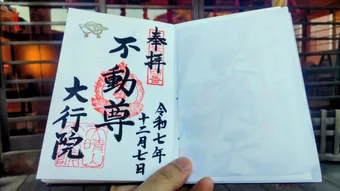 奉拝
令和七年
十二月七日
不動尊
大行院